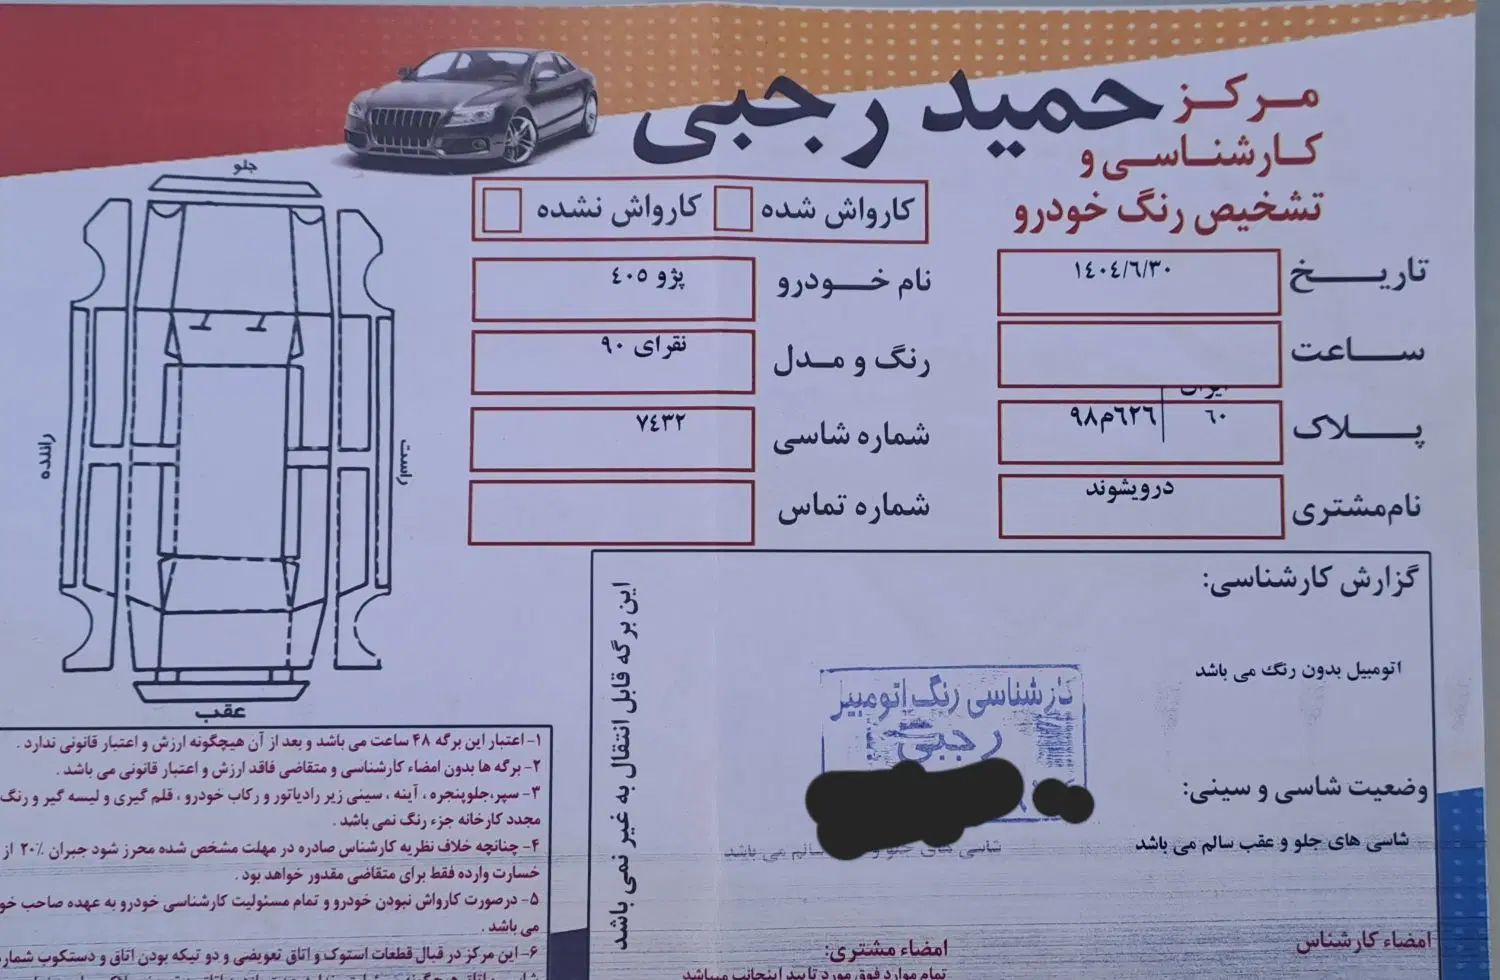 مرکز
کارشناسی و
تشخیص رنگ خودرو
حمید رجبی
کارواش شده
کارواش نشده
تاریخ
۱۴۰۴/۶/۳۰
ساعت
پلاک
ایران
۶۰
۶۲۶م۹۸
نام‌مشتری
درویشوند
نام خودرو
پژو ۴۰۵
رنگ و مدل
نقرای ۹۰
شماره شاسی
۷۴۳۲
شماره تماس
جلو
راننده
راست
عقب
گزارش کارشناسی:
اتومبیل بدون رنگ می باشد
کارشناسی رنگ اتومبیل
رجبی
وضعیت شاسی و سینی:
شاسی های جلو و عقب سالم می باشد
شاسی های جلو و سالم می باشد
امضاء کارشناس
امضاء مشتری:
تمام موارد فوق مورد تایید اینجانب میباشد
این برگه قابل انتقال به غیر نمی باشد
۱- اعتبار این برگه ۴۸ ساعت می باشد و بعد از آن هیچگونه ارزش و اعتبار قانونی ندارد .
۲- برگه ها بدون امضاء کارشناسی و متقاضی فاقد ارزش و اعتبار قانونی می باشد .
۳- سپر،جلوپنجره ، آینه ، سینی زیر رادیاتور و رکاب خودرو ، قلم گیری و لیسه گیر و رنگ
مجدد کارخانه جزء رنگ نمی باشد .
۴- چنانچه خلاف نظریه کارشناس صادره در مهلت مشخص شده محرز شود جبران ۲۰٪ از
خسارت وارده فقط برای متقاضی مقدور خواهد بود .
۵- درصورت کارواش نبودن خودرو و تمام مسئولیت کارشناسی خودرو به عهده صاحب خو
می باشد .
۶- این مرکز در قبال قطعات استوک و اتاق تعویضی و دو تیکه بودن اتاق و دستکوب شمار